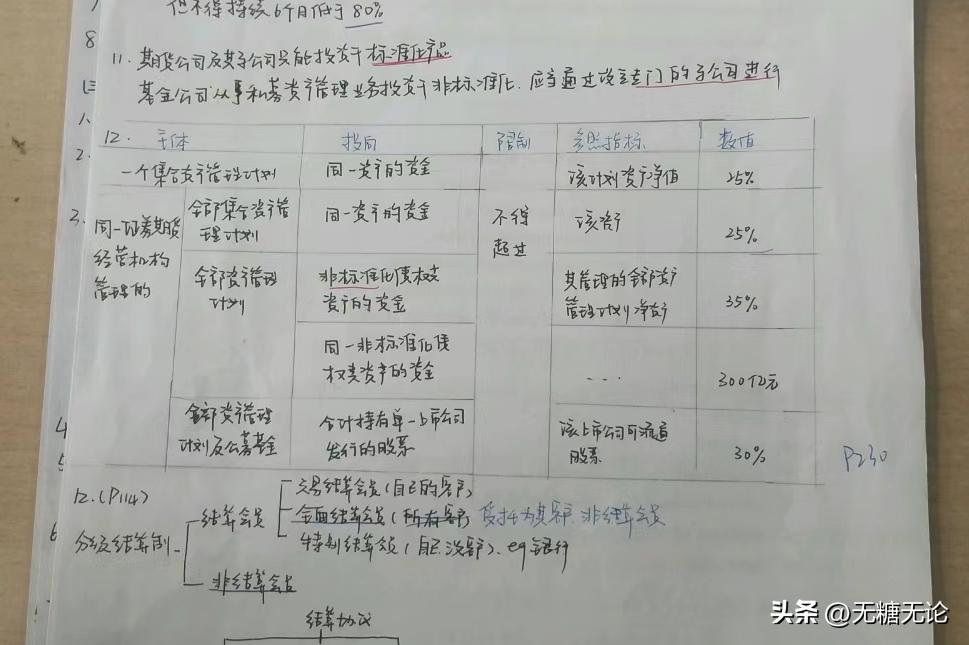 但不得持续6个月低于80%
8
11. 期货公司及其子公司只能投资于标准化产品
基金公司从事私募资产管理业务投资于非标准化，应当通过设立专门的子公司进行
12. 主体 投向 限制 参照指标 数值
2.
一个集合资产管理计划 同一资产的资金 该计划资产净值 25%
3.
同一证券期货
经营机构
管理的
全部集合资产管
理计划
同一资产的资金
不得
超过
该资产
25%
全部资产管理
计划
非标准化债权类
资产的资金
其管理的全部资产
管理计划净资产
35%
同一非标准化债
权类资产的资金
...
300亿元
4
全部资产管理
计划及公募基金
合计持有单一上市公司
发行的股票
该上市公司可流通
股票
30%
P230
5
12.(P114)
分级结算制
结算会员
交易结算会员(自己的客户)
全面结算会员(所有客户) 受托为其客户、非结算会员
特别结算会员(自己没客户). eg银行
6
非结算会员
结算协议
头条 @无糖无论